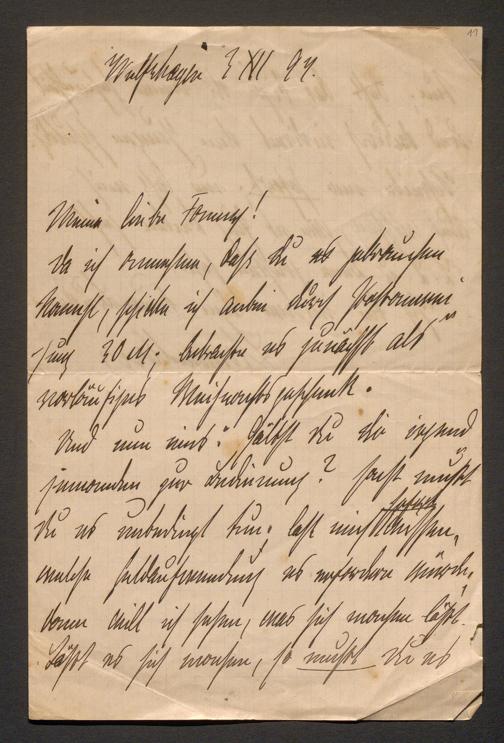 11
Wolfshagen 3 XII 97.
Meine liebe Fanny!
Da ich annehme, daß du es gebrauchen
kannst, schicke ich anbei durch Postanwei-
sung 30 M; betrachte es zunächst als
vorläufiges Weihnachtsgeschenk.
Und nun eins: Hältst du dir irgend
jemanden zur Bedienung? Sonst mußt
du es unbedingt tun. Laß mich sofort wissen,
welche Geldaufwendung es erfordern würde,
dann will ich sehen, was sich machen läßt.
Läßt es sich machen, so mußt du es